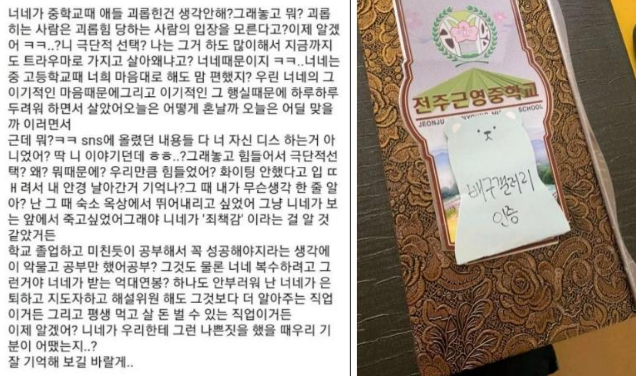 너네가 중학교때 애들 괴롭힌건 생각안해?그래놓고 뭐? 괴롭
히는 사람은 괴롭힘 당하는 사람의 입장을 모른다고?이제 알겠
어 ㅋㅋ..?니 극단적 선택? 나는 그거 하도 많이해서 지금까지
도 트라우마로 가지고 살아왜냐고? 너네때문이지 ㅋㅋ..너네는
중 고등학교때 너희 마음대로 해도 맘 편했지? 우린 너네의 그
이기적인 마음때문에그리고 이기적인 그 행실때문에 하루하루
두려워 하면서 살았어오늘은 어떻게 혼날까 오늘은 어딜 맞을
까 이러면서
근데 뭐?ㅋㅋ sns에 올렸던 내용들 다 너 자신 디스 하는거 아
니었어? 딱 니 이야기던데 ㅎㅎ..?그래놓고 힘들어서 극단적선
택? 왜? 뭐때문에? 우리만큼 힘들었어? 화이팅 안했다고 입 ㄸ
ㅐ려서 내 안경 날아간거 기억나? 그 때 내가 무슨생각 한 줄 알
아? 난 그 때 숙소 옥상에서 뛰어내리고 싶었어 그냥 니네가 보
는 앞에서 죽고싶었어그래야 니네가 '죄책감' 이라는 걸 알 것
같았거든
학교 졸업하고 미친듯이 공부해서 꼭 성공해야지라는 생각에
이 악물고 공부만 했어공부? 그것도 물론 너네 복수하려고 그
런거야 너네가 받는 억대연봉? 하나도 안부러워 난 너네가 은
퇴하고 지도자하고 해설위원 해도 그것보다 더 알아주는 직업
이거든 그리고 평생 먹고 살 돈 벌 수 있는 직업이거든
이제 알겠어? 니네가 우리한테 그런 나쁜짓을 했을 때우리 기
분이 어땠는지..?
잘 기억해 보길 바랄게..
전주근영중학교
JEONJU
SCHOOL
배구갤러리
인증